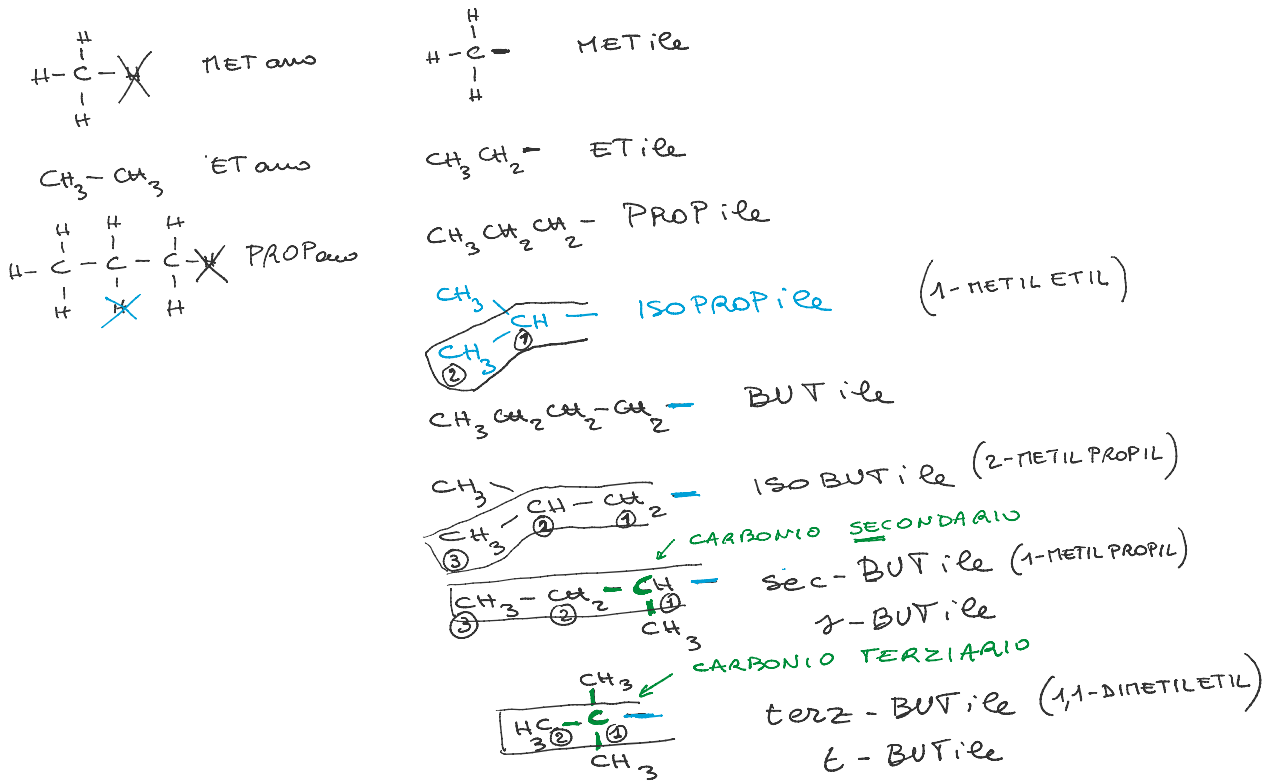 H
H-C-H METano
H
H
H-C- METile
H
CH3-CH3 ETano
CH3CH2- ETile
H H H
H-C-C-C-H PROPano
H H H
CH3CH2CH2- PROPile
CH3
CH- ISOPROPile (1-METILETIL)
1
CH3
2
CH3CH2CH2-CH2- BUTile
CH3
CH-CH2- ISOBUTile (2-METILPROPIL)
2 1
CH3
3
CARBONIO SECONDARIO
CH3-CH2-CH- sec-BUTile (1-METILPROPIL)
3 2 1
CH3
s-BUTile
CARBONIO TERZIARIO
CH3
H3C-C- terz-BUTile (1,1-DIMETILETIL)
2 1
CH3
t-BUTile